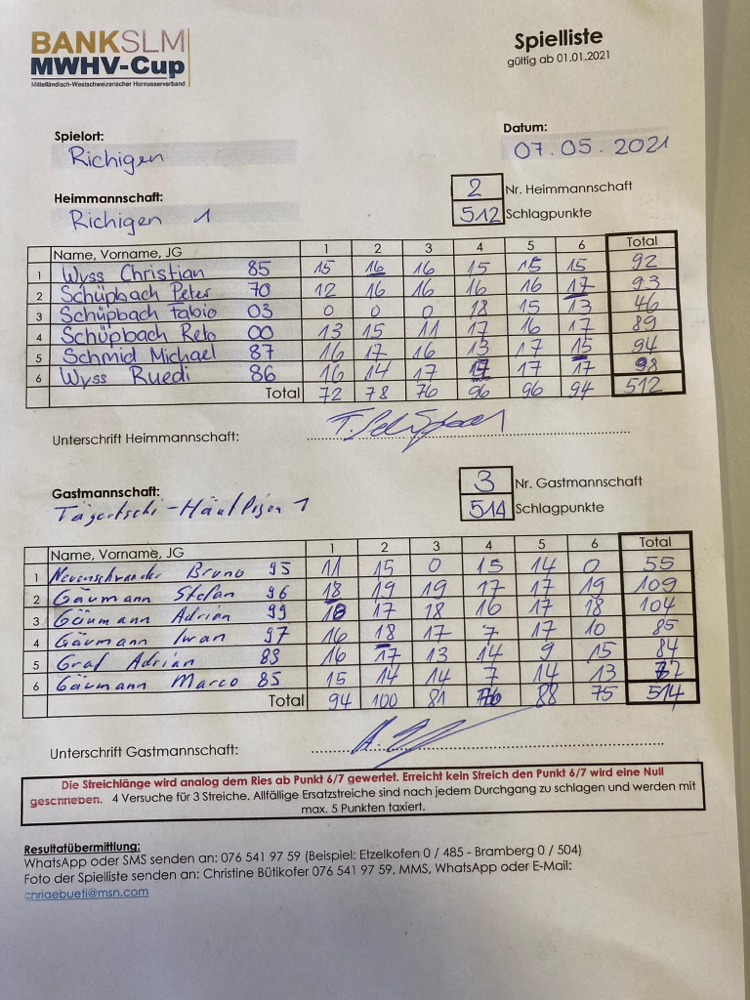 BANKSLM
MWHV-Cup
Mittelländisch-Westschweizerischer Hornusserverband
Spielliste
gültig ab 01.01.2021
Spielort:
Richigen
Datum:
07.05.2021
Heimmannschaft:
Richigen 1
2 Nr. Heimmannschaft
512 Schlagpunkte
Name, Vorname, JG 1 2 3 4 5 6 Total
1 Wyss Christian 85 15 16 16 15 15 15 92
2 Schüpbach Peter 70 12 16 16 16 16 17 93
3 Schüpbach Fabio 03 0 0 0 18 15 13 46
4 Schüpbach Reto 00 13 15 11 17 16 17 89
5 Schmid Michael 87 16 17 16 13 17 15 94
6 Wyss Ruedi 86 16 14 17 17 17 17 98
Total 72 78 76 96 96 94 512
Unterschrift Heimmannschaft:
Gastmannschaft:
Tägertschi-Häutligen 1
3 Nr. Gastmannschaft
514 Schlagpunkte
Name, Vorname, JG 1 2 3 4 5 6 Total
1 Neuenschwander Bruno 95 11 15 0 15 14 0 55
2 Gäumann Stefan 96 18 19 19 17 17 19 109
3 Gäumann Adrian 99 18 17 18 16 17 18 104
4 Gäumann Iwan 97 16 18 17 7 17 10 85
5 Graf Adrian 83 16 17 13 14 9 15 84
6 Gäumann Marco 85 15 14 14 7 14 13 77
Total 94 100 81 76 88 75 514
Unterschrift Gastmannschaft:
Die Streichlänge wird analog dem Ries ab Punkt 6/7 gewertet. Erreicht kein Streich den Punkt 6/7 wird eine Null
geschrieben. 4 Versuche für 3 Streiche. Allfällige Ersatzstreiche sind nach jedem Durchgang zu schlagen und werden mit
max. 5 Punkten taxiert.
Resultatübermittlung:
WhatsApp oder SMS senden an: 076 541 97 59 (Beispiel: Etzelkofen 0 / 485 - Bramberg 0 / 504)
Foto der Spielliste senden an: Christine Bütikofer 076 541 97 59, MMS, WhatsApp oder E-Mail: